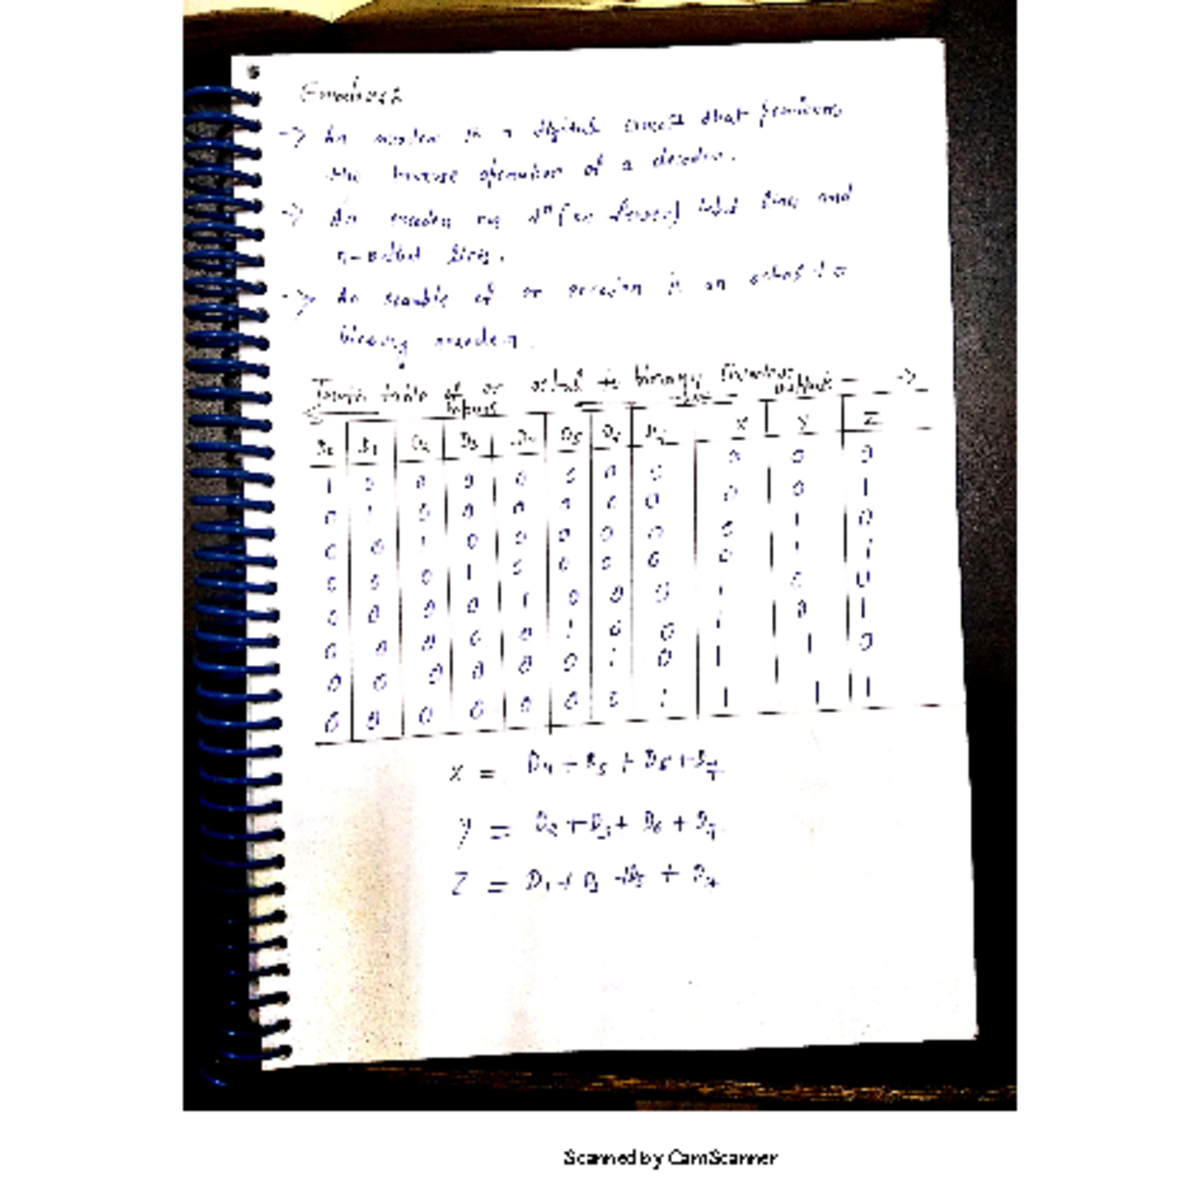 Encoders
-> An encoder is a digital circuit that performs
the inverse operation of a decoder.
-> An encoder has 2ⁿ (or fewer) input lines and
n-output lines.
-> An example of an encoder is an octal to
binary encoder.
Truth table of an octal to binary Encoder
Inputs outputs
D₀ D₁ D₂ D₃ D₄ D₅ D₆ D₇ X Y Z
1 0 0 0 0 0 0 0 0 0 0
0 1 0 0 0 0 0 0 0 0 1
0 0 1 0 0 0 0 0 0 1 0
0 0 0 1 0 0 0 0 0 1 1
0 0 0 0 1 0 0 0 1 0 0
0 0 0 0 0 1 0 0 1 0 1
0 0 0 0 0 0 1 0 1 1 0
0 0 0 0 0 0 0 1 1 1 1
X = D₄ + D₅ + D₆ + D₇
Y = D₂ + D₃ + D₆ + D₇
Z = D₁ + D₃ + D₅ + D₇
Scanned by CamScanner